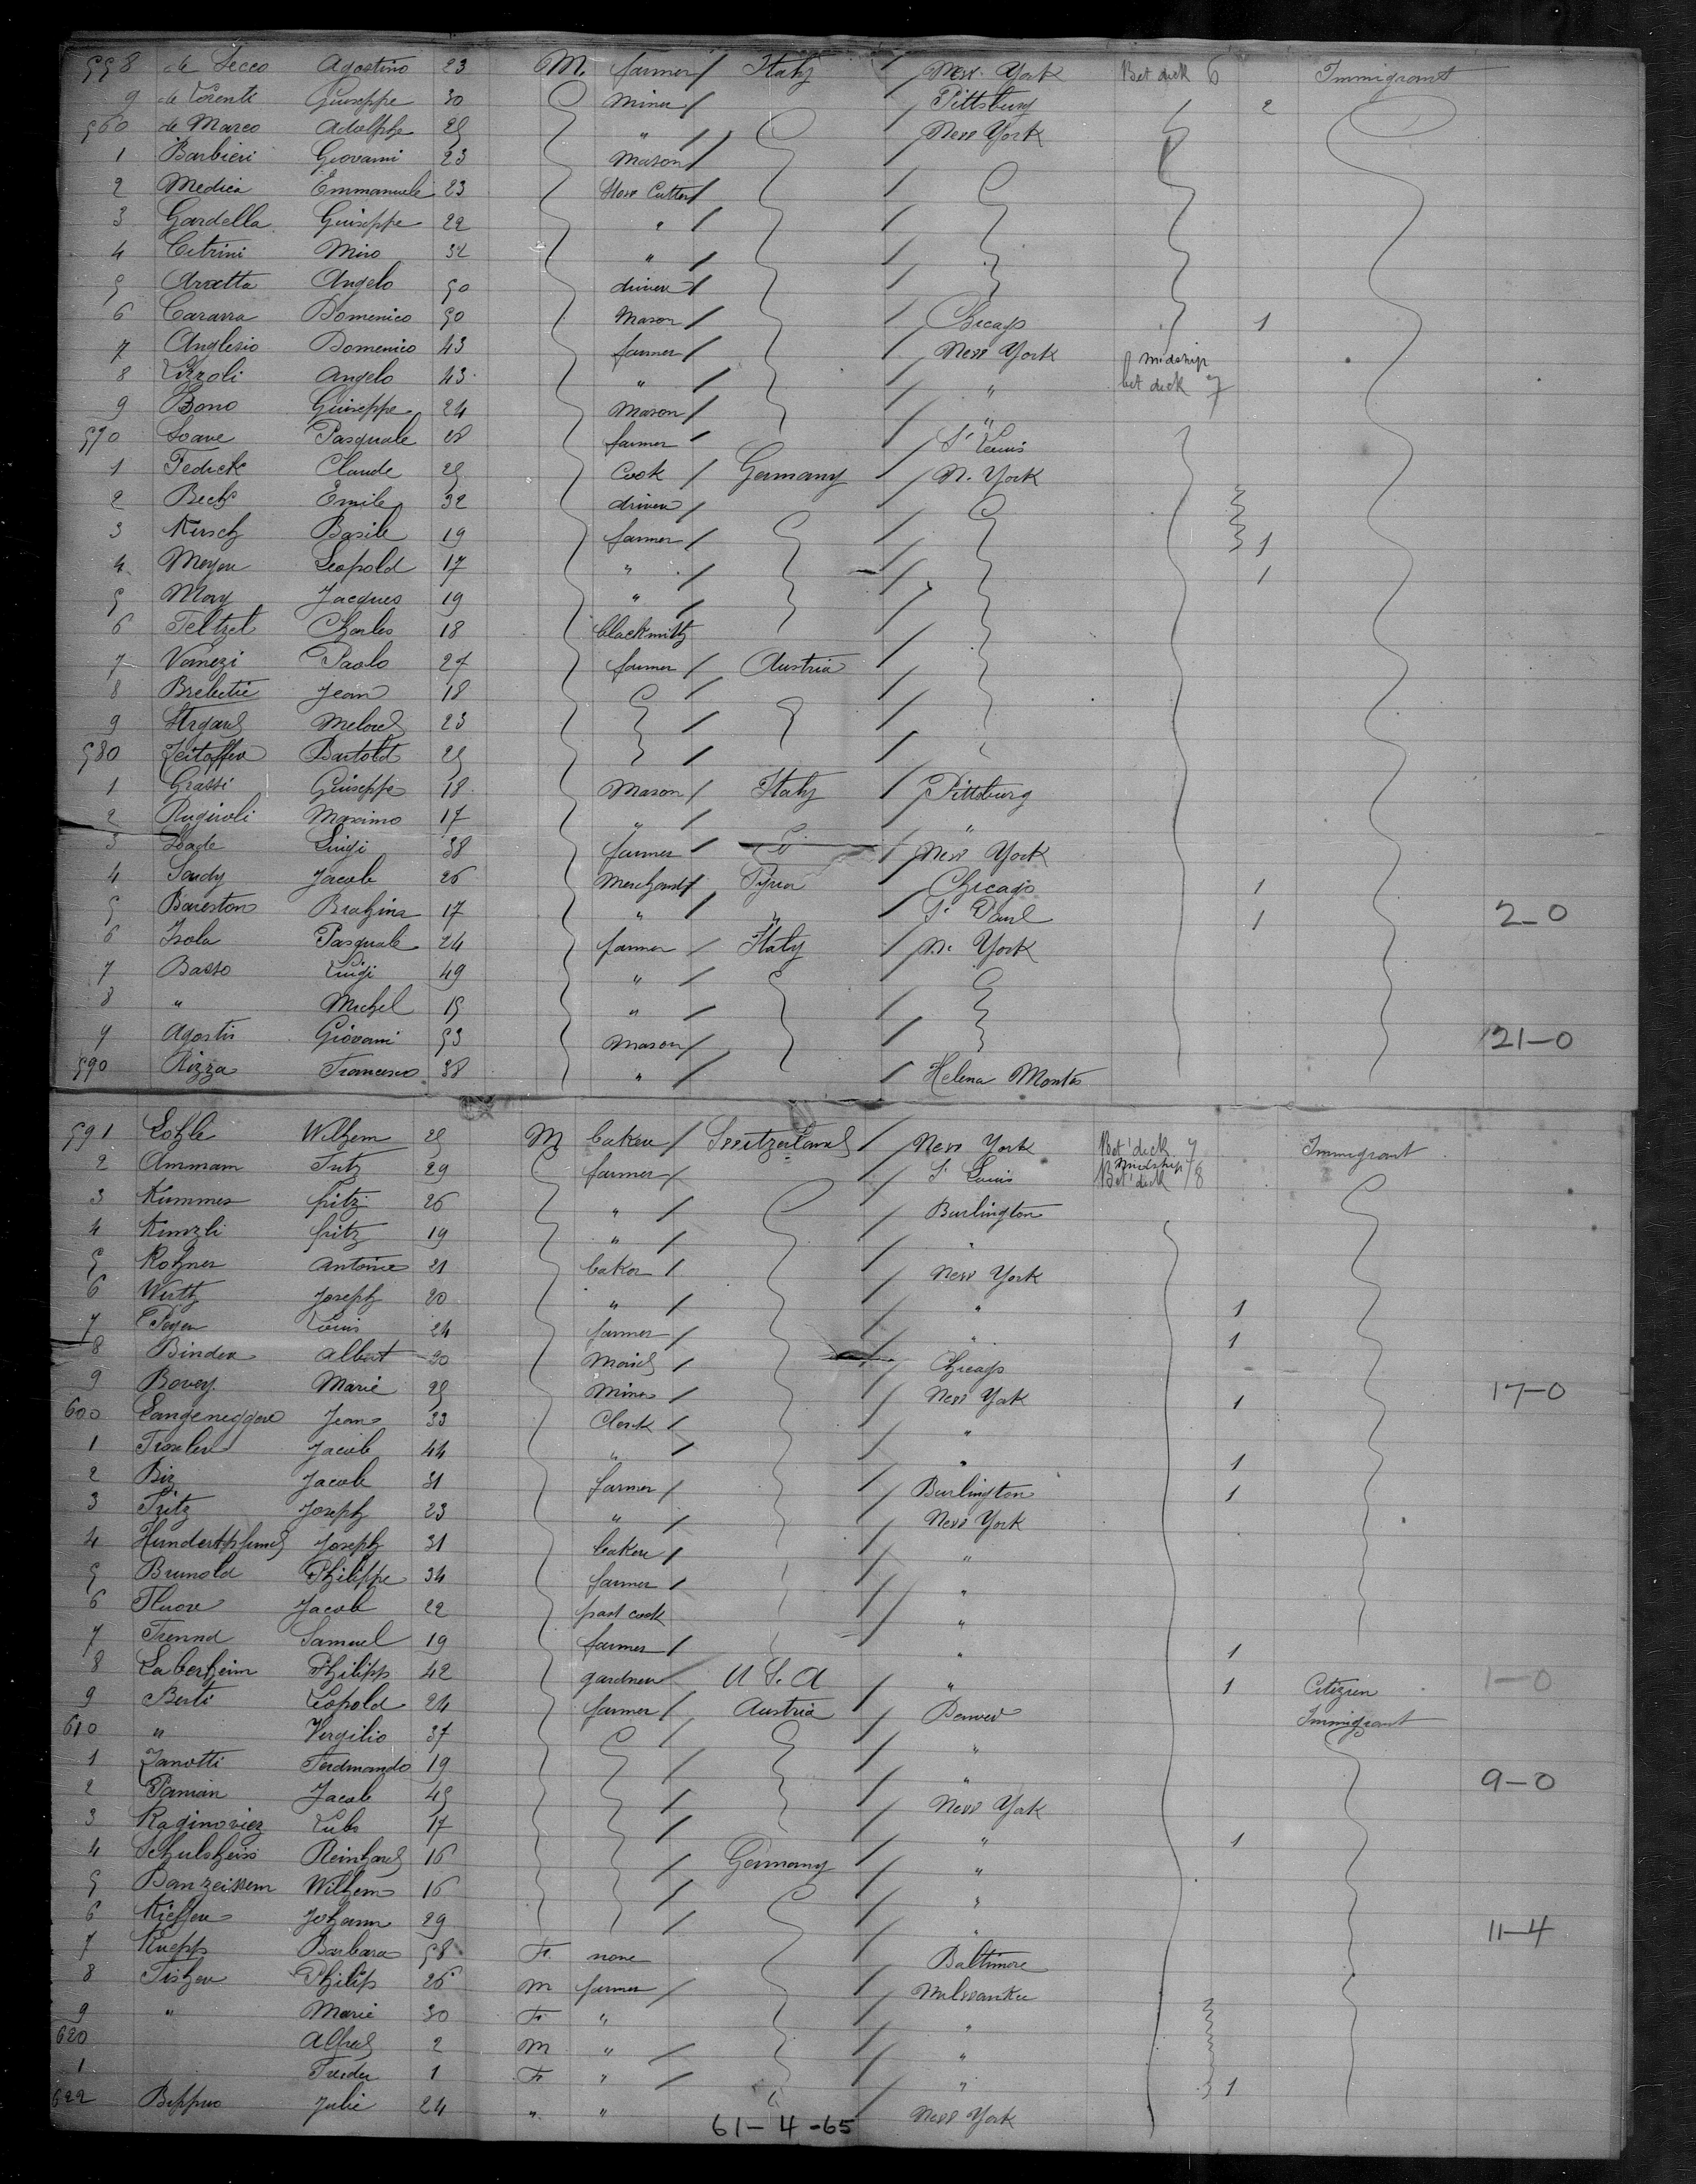 558 de Secco Agostino 23 M. farmer / Italy / New York Bet deck 6 Immigrant
9 de Lorenti Giuseppe 30 miner / / Pittsburg 2
560 de Marco Adolphe 25 " / / New York
1 Barbieri Giovanni 23 mason / /
2 Medica Emmanuele 23 Stone Cutter / /
3 Gardella Giuseppe 22 " / /
4 Citrini Miro 32 " / /
5 Angelo 50 driver / /
6 Cararra Domenico 50 Mason / / Chicago 1
7 Anglesio Domenico 43 farmer / / New York midship
8 Lizzoli Angelo 43 " / / " bet deck 7
9 Bono Giuseppe 24 Mason / / "
570 Soave Pasquale 28 farmer / / St Louis
1 Fedick Claude 25 Cook / Germany / N. York
2 Bech Emile 32 driver / /
3 Kirsch Basile 19 farmer / / 1
4 Meyer Leopold 17 " / / 1
5 Mory Jacques 19 " / /
6 Teltzet Charles 18 blacksmith /
7 Vanezi Paolo 27 farmer / Austria /
8 Brebetic Jean 18 / /
9 23 / /
580 Bartold 25 / /
1 Grassi Giuseppe 18 Mason / Italy / Pittsburg
2 Rugiroli Maximo 17 " / / "
3 Luigi 38 farmer / / New York
4 Saudy Jacob 26 Merchant / Syria / Chicago 1
5 Bareston Brahina 17 " / " / St Paul 1 2-0
6 Isola Pasquale 24 farmer / Italy / N. York
7 Basso Luigi 49 " / /
8 " Michel 15 " / /
9 Agostis Giovanni 53 Mason / / 21-0
590 Rizza Francesco 38 " / / Helena Montes
591 Wilhem 25 M baker / Switzerland / New York Bet' deck 7 Immigrant
2 Ammam Fritz 29 farmer / / St Louis midship Bet' deck 8
3 Kummer fritz 26 " / / Burlington
4 Kunzli fritz 19 " / / "
5 Rohner Antoine 21 baker / / New York
6 Wirth Joseph 20 " / / " 1
7 Louis 24 farmer / / " 1
8 Binder Albert 20 / / Chicago
9 Bovey Marie 25 / / New York 1 17-0
600 Langenegger Jean 33 Clerk / / "
1 Troxler Jacob 44 " / / " 1
2 Biz Jacob 31 farmer / / Burlington 1
3 Fritz Joseph 23 " / / New York
4 Hundertpfund Joseph 31 baker / / "
5 Brunold Philippe 34 farmer / / "
6 Jacob 22 past cook / "
7 Samuel 19 farmer / / " 1
8 Laberheim Philipp 42 gardner U.S.A / " 1 Citizen 1-0
9 Berti Leopold 24 farmer / Austria / Denver Immigrant
610 " Virgilio 37 / / "
1 Zanotti Ferdinando 19 / / "
2 Jacob 45 / / New York 9-0
3 Raginoviez 17 / / " 1
4 Schulsheiss Reinhard 16 / Germany / "
5 Wilhem 16 / / "
6 Kieffer Johann 29 / / " 11-4
7 Kuepp Barbara 58 F. none Baltimore
8 Fisher Philip 26 m farmer / / Milwaukee
9 " Marie 30 F. " / "
620 Alfred 2 m " / / "
1 1 F. " / / " 1
622 Julie 24 " " " / New York
61-4-65